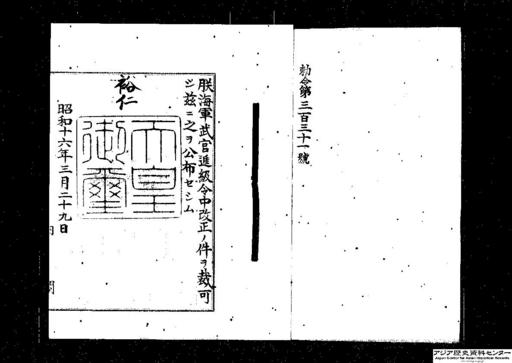 勅令第三百三十一號
朕海軍武官進級令中改正ノ件ヲ裁可
シ茲ニ之ヲ公布セシム
裕仁
天皇
御璽
昭和十六年三月二十九日
内閣
アジア歴史資料センター
Japan Center for Asian Historical Records